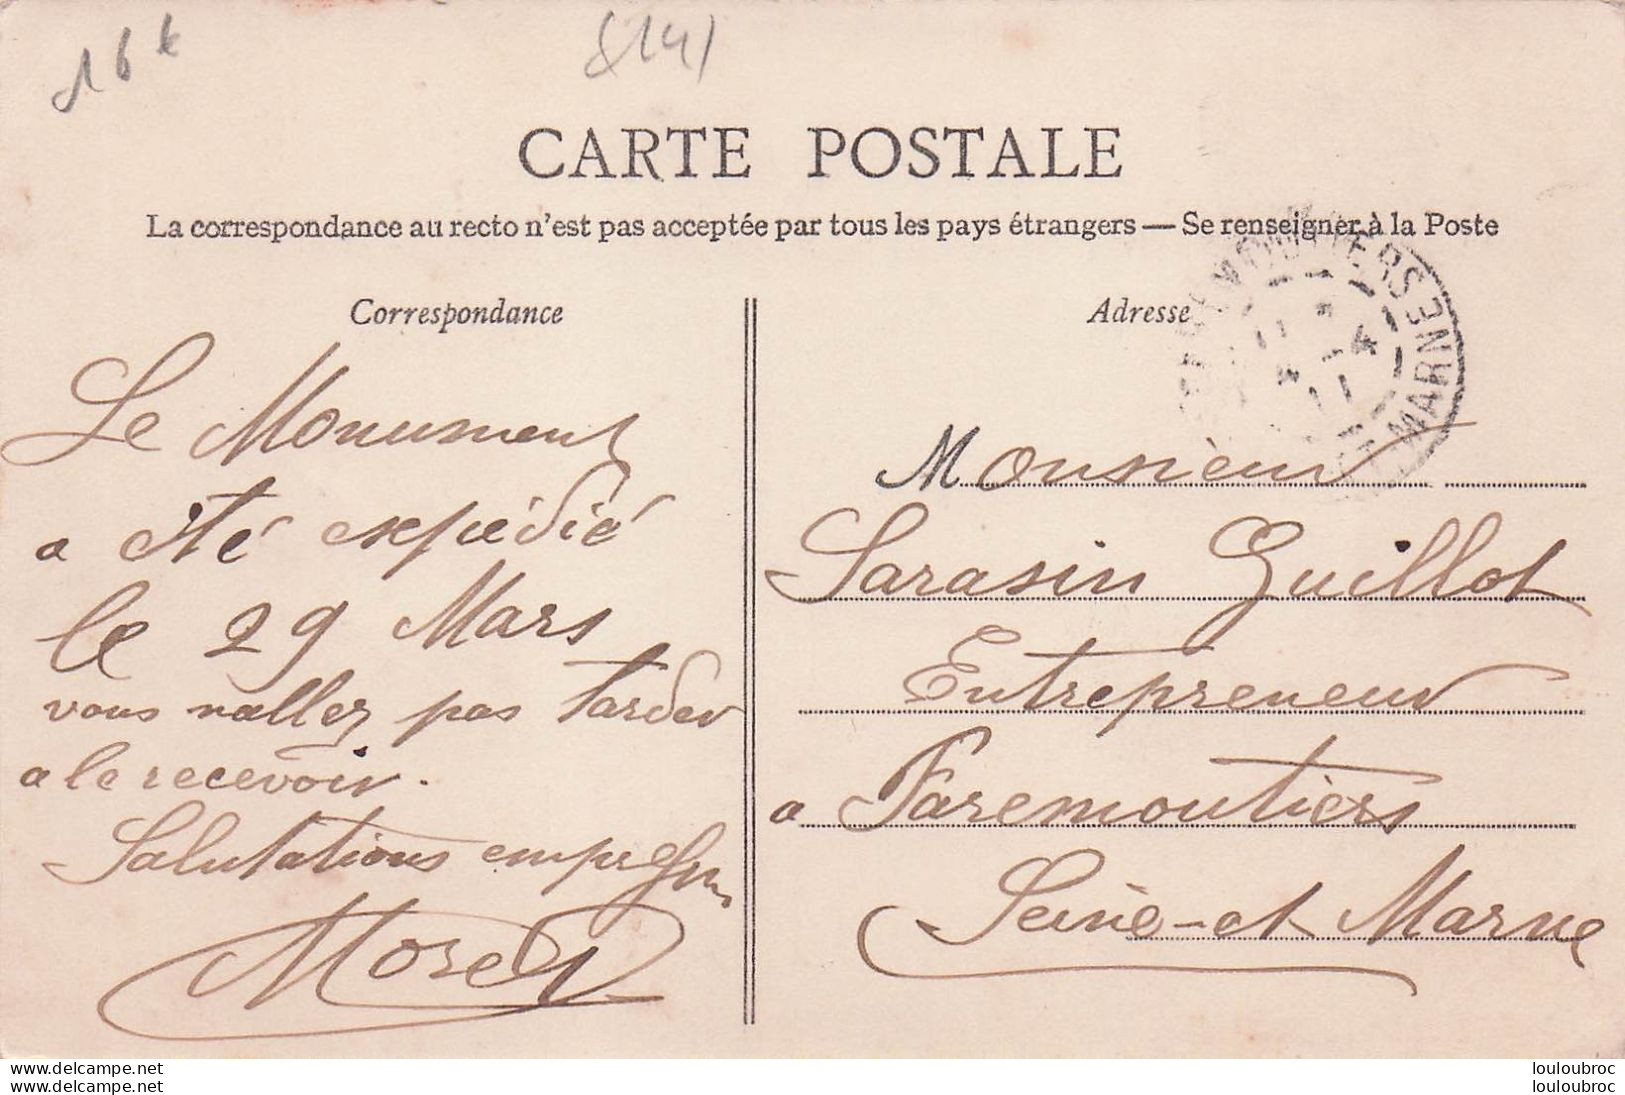 16 €
(14)
CARTE POSTALE
La correspondance au recto n'est pas acceptée par tous les pays étrangers — Se renseigner à la Poste
Correspondance
Le Monument
a été expédié
le 29 Mars
vous nallez pas tarder
a le recevoir.
Salutations
Morel
Adresse
MOUTIERS
MARNE
11
Monsieur
Sarasin Guillot
Entrepreneur
a Faremoutiers
Seine-et Marne
www.delcampe.net
www.delcampe.net
louloubroc
louloubroc